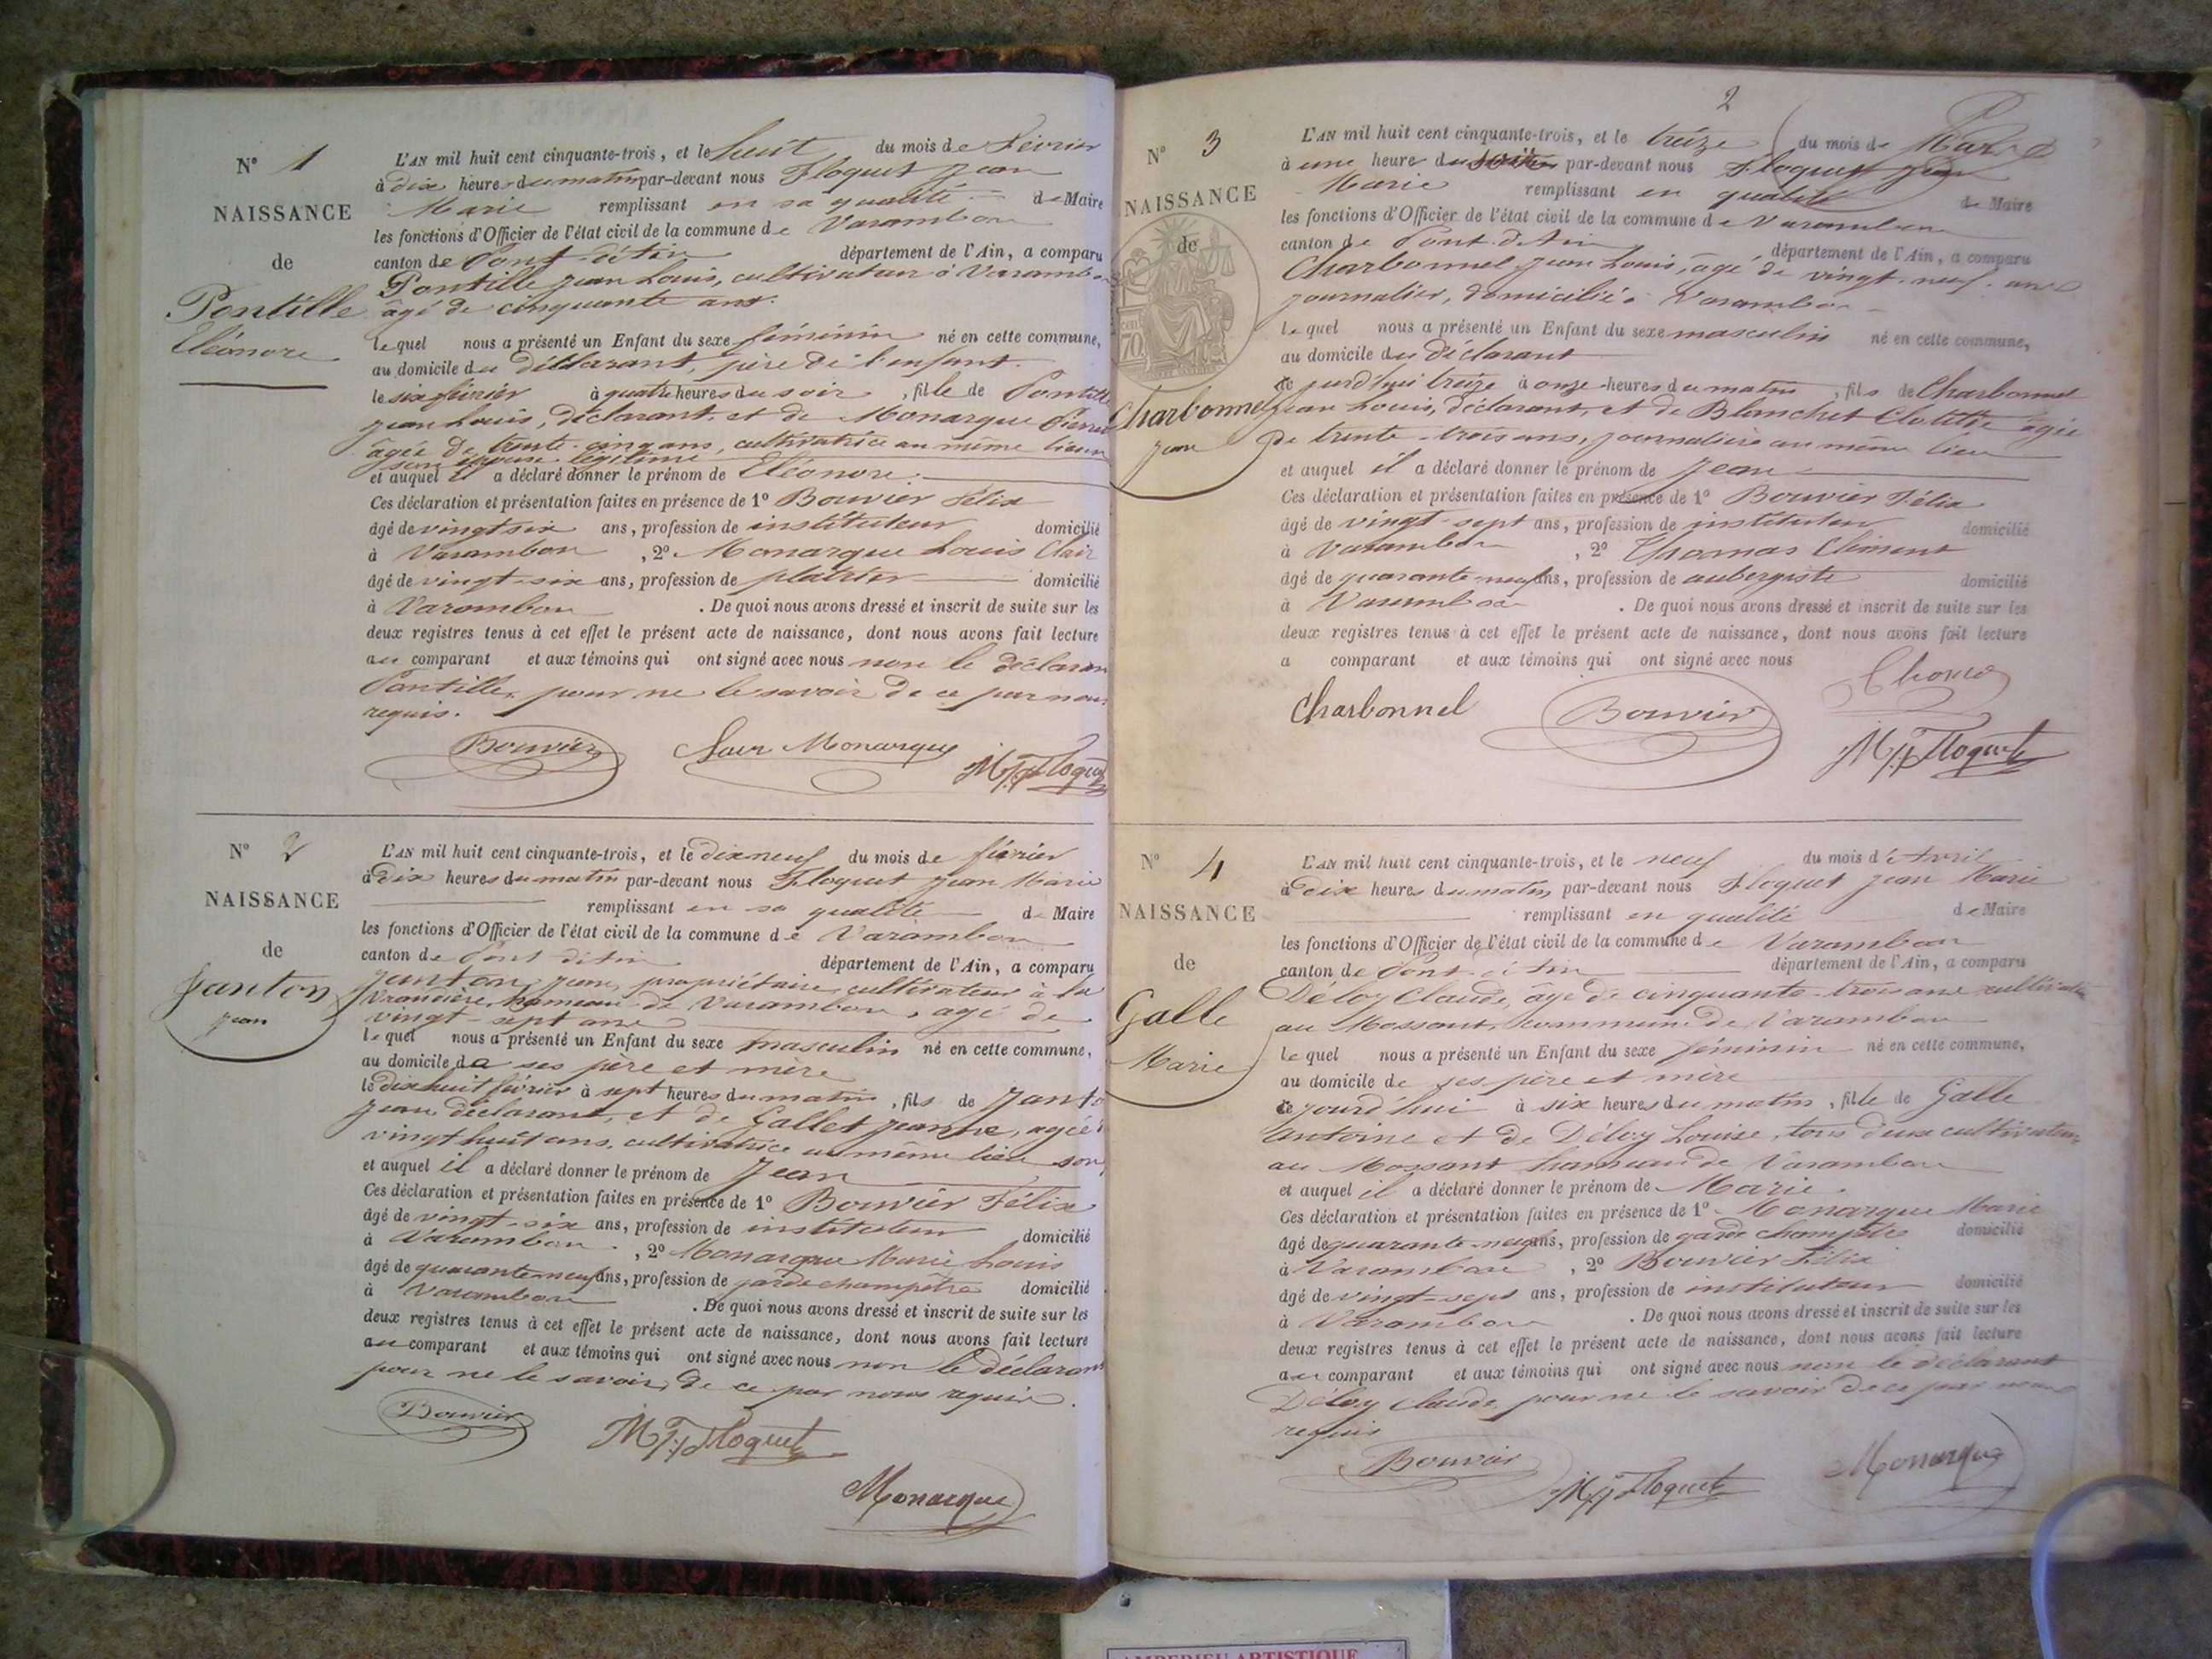 N° 1
NAISSANCE
de
Pontille
Eléonore
L'AN mil huit cent cinquante-trois, et le huit du mois de Février
à dix heures du matin par-devant nous Floquet Jean
Marie remplissant en sa qualité de Maire
les fonctions d'Officier de l'état civil de la commune de Varambon
canton de Pont d'Ain département de l'Ain, a comparu
Pontille Jean Louis, cultivateur à Varambon
âgé de cinquante ans.
lequel nous a présenté un Enfant du sexe féminin né en cette commune,
au domicile du déclarant, père de l'enfant.
le six février à quatre heures du soir, fille de Pontille
Jean Louis, déclarant, et de Monarque
âgée de trente-cinq ans, cultivatrice au même lieu
son épouse légitime
et auquel il a déclaré donner le prénom de Eléonore.
Ces déclaration et présentation faites en présence de 1° Bouvier Félix
âgé de vingt six ans, profession de instituteur domicilié
à Varambon, 2° Monarque Louis Clair
âgé de vingt-six ans, profession de plâtrier domicilié
à Varambon. De quoi nous avons dressé et inscrit de suite sur les
deux registres tenus à cet effet le présent acte de naissance, dont nous avons fait lecture
au comparant et aux témoins qui ont signé avec nous non le déclarant
Pontille, pour ne le savoir de ce par nous
requis.
Bouvier Monarque M J Floquet
N° 2
NAISSANCE
de
Janton
Jean
L'AN mil huit cent cinquante-trois, et le dix neuf du mois de février
à dix heures du matin par-devant nous Floquet Jean Marie
remplissant en sa qualité de Maire
les fonctions d'Officier de l'état civil de la commune de Varambon
canton de Pont d'Ain département de l'Ain, a comparu
Janton Jean, propriétaire cultivateur à la
hameau de Varambon, âgé de
vingt-sept ans
lequel nous a présenté un Enfant du sexe masculin né en cette commune,
au domicile de ses père et mère
le dix huit février à sept heures du matin, fils de Janton
Jean déclarant, et de Gallet Jeanne, âgée
vingt huit ans, cultivatrice au même lieu son
et auquel il a déclaré donner le prénom de Jean
Ces déclaration et présentation faites en présence de 1° Bouvier Félix
âgé de vingt-six ans, profession de instituteur domicilié
à Varambon, 2° Monarque Marie Louis
âgé de quarante neuf ans, profession de garde champêtre domicilié
à Varambon. De quoi nous avons dressé et inscrit de suite sur les
deux registres tenus à cet effet le présent acte de naissance, dont nous avons fait lecture
au comparant et aux témoins qui ont signé avec nous non le déclarant
pour ne le savoir, de ce par nous requis.
Bouvier M J Floquet
Monarque
2
N° 3
NAISSANCE
de
Charbonnel
Jean
L'AN mil huit cent cinquante-trois, et le treize du mois de Mars
à une heure du par-devant nous Floquet Jean
Marie remplissant en qualité de Maire
les fonctions d'Officier de l'état civil de la commune de Varambon
canton de Pont d'Ain département de l'Ain, a comparu
Charbonnel Jean Louis, âgé de vingt-neuf ans
journalier, domicilié à Varambon
lequel nous a présenté un Enfant du sexe masculin né en cette commune,
au domicile du déclarant
ce jourd'hui treize à onze heures du matin, fils de Charbonnel
Jean Louis, déclarant, et de Blanchet Clotilde âgée
de trente-trois ans, journalière au même lieu
et auquel il a déclaré donner le prénom de Jean
Ces déclaration et présentation faites en présence de 1° Bouvier Félix
âgé de vingt-sept ans, profession de instituteur domicilié
à Varambon, 2° Thomas Clément
âgé de quarante-neuf ans, profession de aubergiste domicilié
à Varambon. De quoi nous avons dressé et inscrit de suite sur les
deux registres tenus à cet effet le présent acte de naissance, dont nous avons fait lecture
a comparant et aux témoins qui ont signé avec nous
Charbonnel Bouvier
M J Floquet
N° 4
NAISSANCE
de
Galle
Marie
L'AN mil huit cent cinquante-trois, et le neuf du mois d'Avril
à dix heures du matin, par-devant nous Floquet Jean Marie
remplissant en qualité de Maire
les fonctions d'Officier de l'état civil de la commune de Varambon
canton de Pont d'Ain département de l'Ain, a comparu
Déloy Claude, âgé de cinquante-trois ans cultivateur
au Mossant, commune de Varambon
lequel nous a présenté un Enfant du sexe féminin né en cette commune,
au domicile de ses père et mère
ce jourd'hui à six heures du matin, fille de Galle
Antoine et de Déloy Louise, tous deux cultivateurs
au Mossant hameau de Varambon
et auquel il a déclaré donner le prénom de Marie.
Ces déclaration et présentation faites en présence de 1° Monarque Marie
âgé de quarante-neuf ans, profession de garde champêtre domicilié
à Varambon, 2° Bouvier Félix
âgé de vingt-sept ans, profession de instituteur domicilié
à Varambon. De quoi nous avons dressé et inscrit de suite sur les
deux registres tenus à cet effet le présent acte de naissance, dont nous avons fait lecture
au comparant et aux témoins qui ont signé avec nous non le déclarant
Déloy Claude pour ne le savoir de ce par nous
requis
Bouvier M J Floquet Monarque